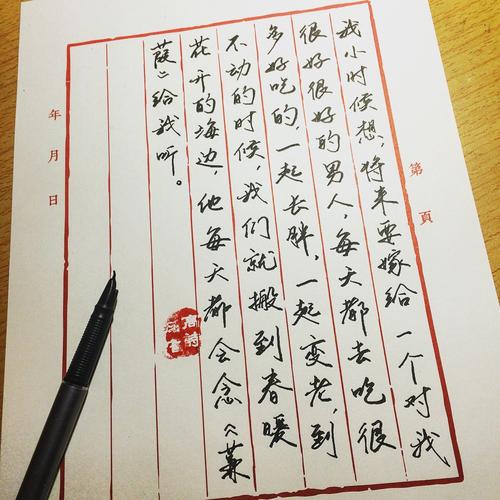 第　頁
我小时候想，将来要嫁给一个对我
很好很好的男人，每天都去吃很
多好吃的，一起长胖，一起变老，到
不动的时候，我们就搬到春暖
花开的海边，他每天都会念《蒹
葭》给我听。
年　月　日